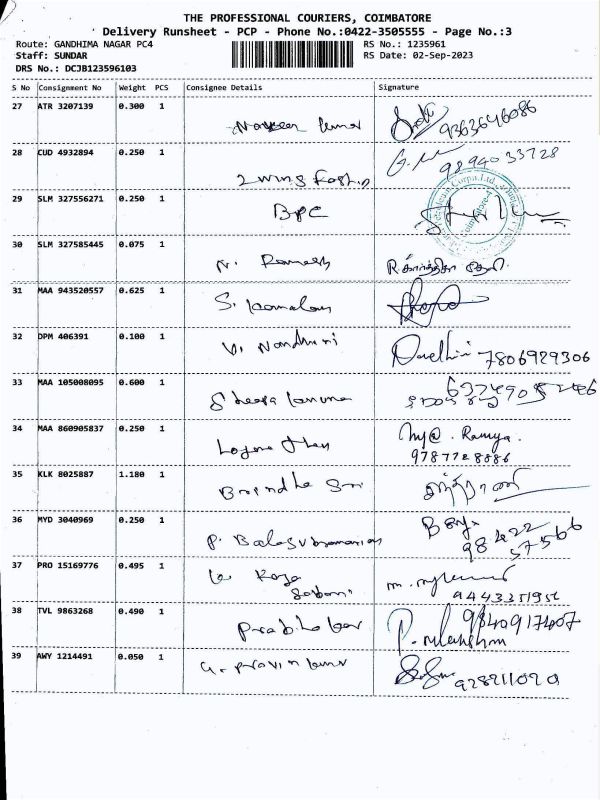 THE PROFESSIONAL COURIERS, COIMBATORE
Delivery Runsheet - PCP - Phone No.:0422-3505555 - Page No.:3
Route: GANDHIMA NAGAR PC4
RS No.: 1235961
Staff: SUNDAR
RS Date: 02-Sep-2023
DRS No.: DCJB123596103
S No Consignment No Weight PCS Consignee Details Signature
27 ATR 3207139 0.300 1 Naveen Kumar 9363646086
28 CUD 4932894 0.250 1 2 wing 9894033728
29 SLM 327556271 0.250 1 BPC
30 SLM 327585445 0.075 1 N. Ramesh R.கார்த்திகா தேவி.
31 MAA 943520557 0.625 1 S. Kamalam
32 DPM 406391 0.100 1 V. Nandhini 7806929306
33 MAA 105008095 0.600 1
34 MAA 860905837 0.250 1 Ramya.
9787728886
35 KLK 8025887 1.180 1 Brindha Sri
36 MYD 3040969 0.250 1 P. Balasubramanian 98422
57566
37 PRO 15169776 0.495 1
9443351956
38 TVL 9863268 0.490 1 Prabhakar 9840917407
39 AWY 1214491 0.050 1 G. Pravin Kumar